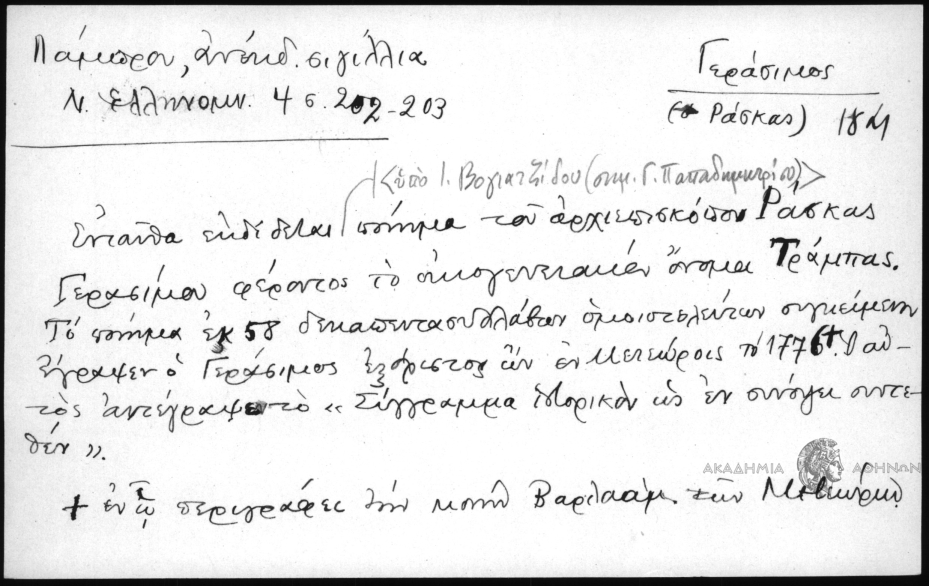 Λάμπρου, ἀνέκδ. σιγίλλια
Ν. Ἑλληνομν. 4 σ. 202-203
Γεράσιμος
(Ράσκας) 18
<ὑπὸ Ι. Βογιατζίδου (σημ. Γ. Παπαδημητρίου)>
Ἐνταῦθα ἐκδίδεται ποίημα τοῦ ἀρχιεπισκόπου Ράσκας
Γερασίμου φέροντος τὸ οἰκογενειακὸν ὄνομα Τράμπας.
Τό ποίημα ἐκ 58 δεκαπεντασυλλάβων ὁμοιοτελεύτων συγκείμενον
ἔγραψεν ὁ Γεράσιμος ἐξόριστος ὢν ἐν Μετεώροις τὸ 1776+. Ὁ αὐ-
τὸς ἀντέγραψε τὸ « Σύγγραμμα ἱστορικὸν ὡς ἐν συνόψει συντε-
θέν ».
+ ἐν ᾧ περιγράφει τὴν μονὴν Βαρλαάμ τῶν Μετεώρων
ΑΚΑΔΗΜΙΑ ΑΘΗΝΩΝ